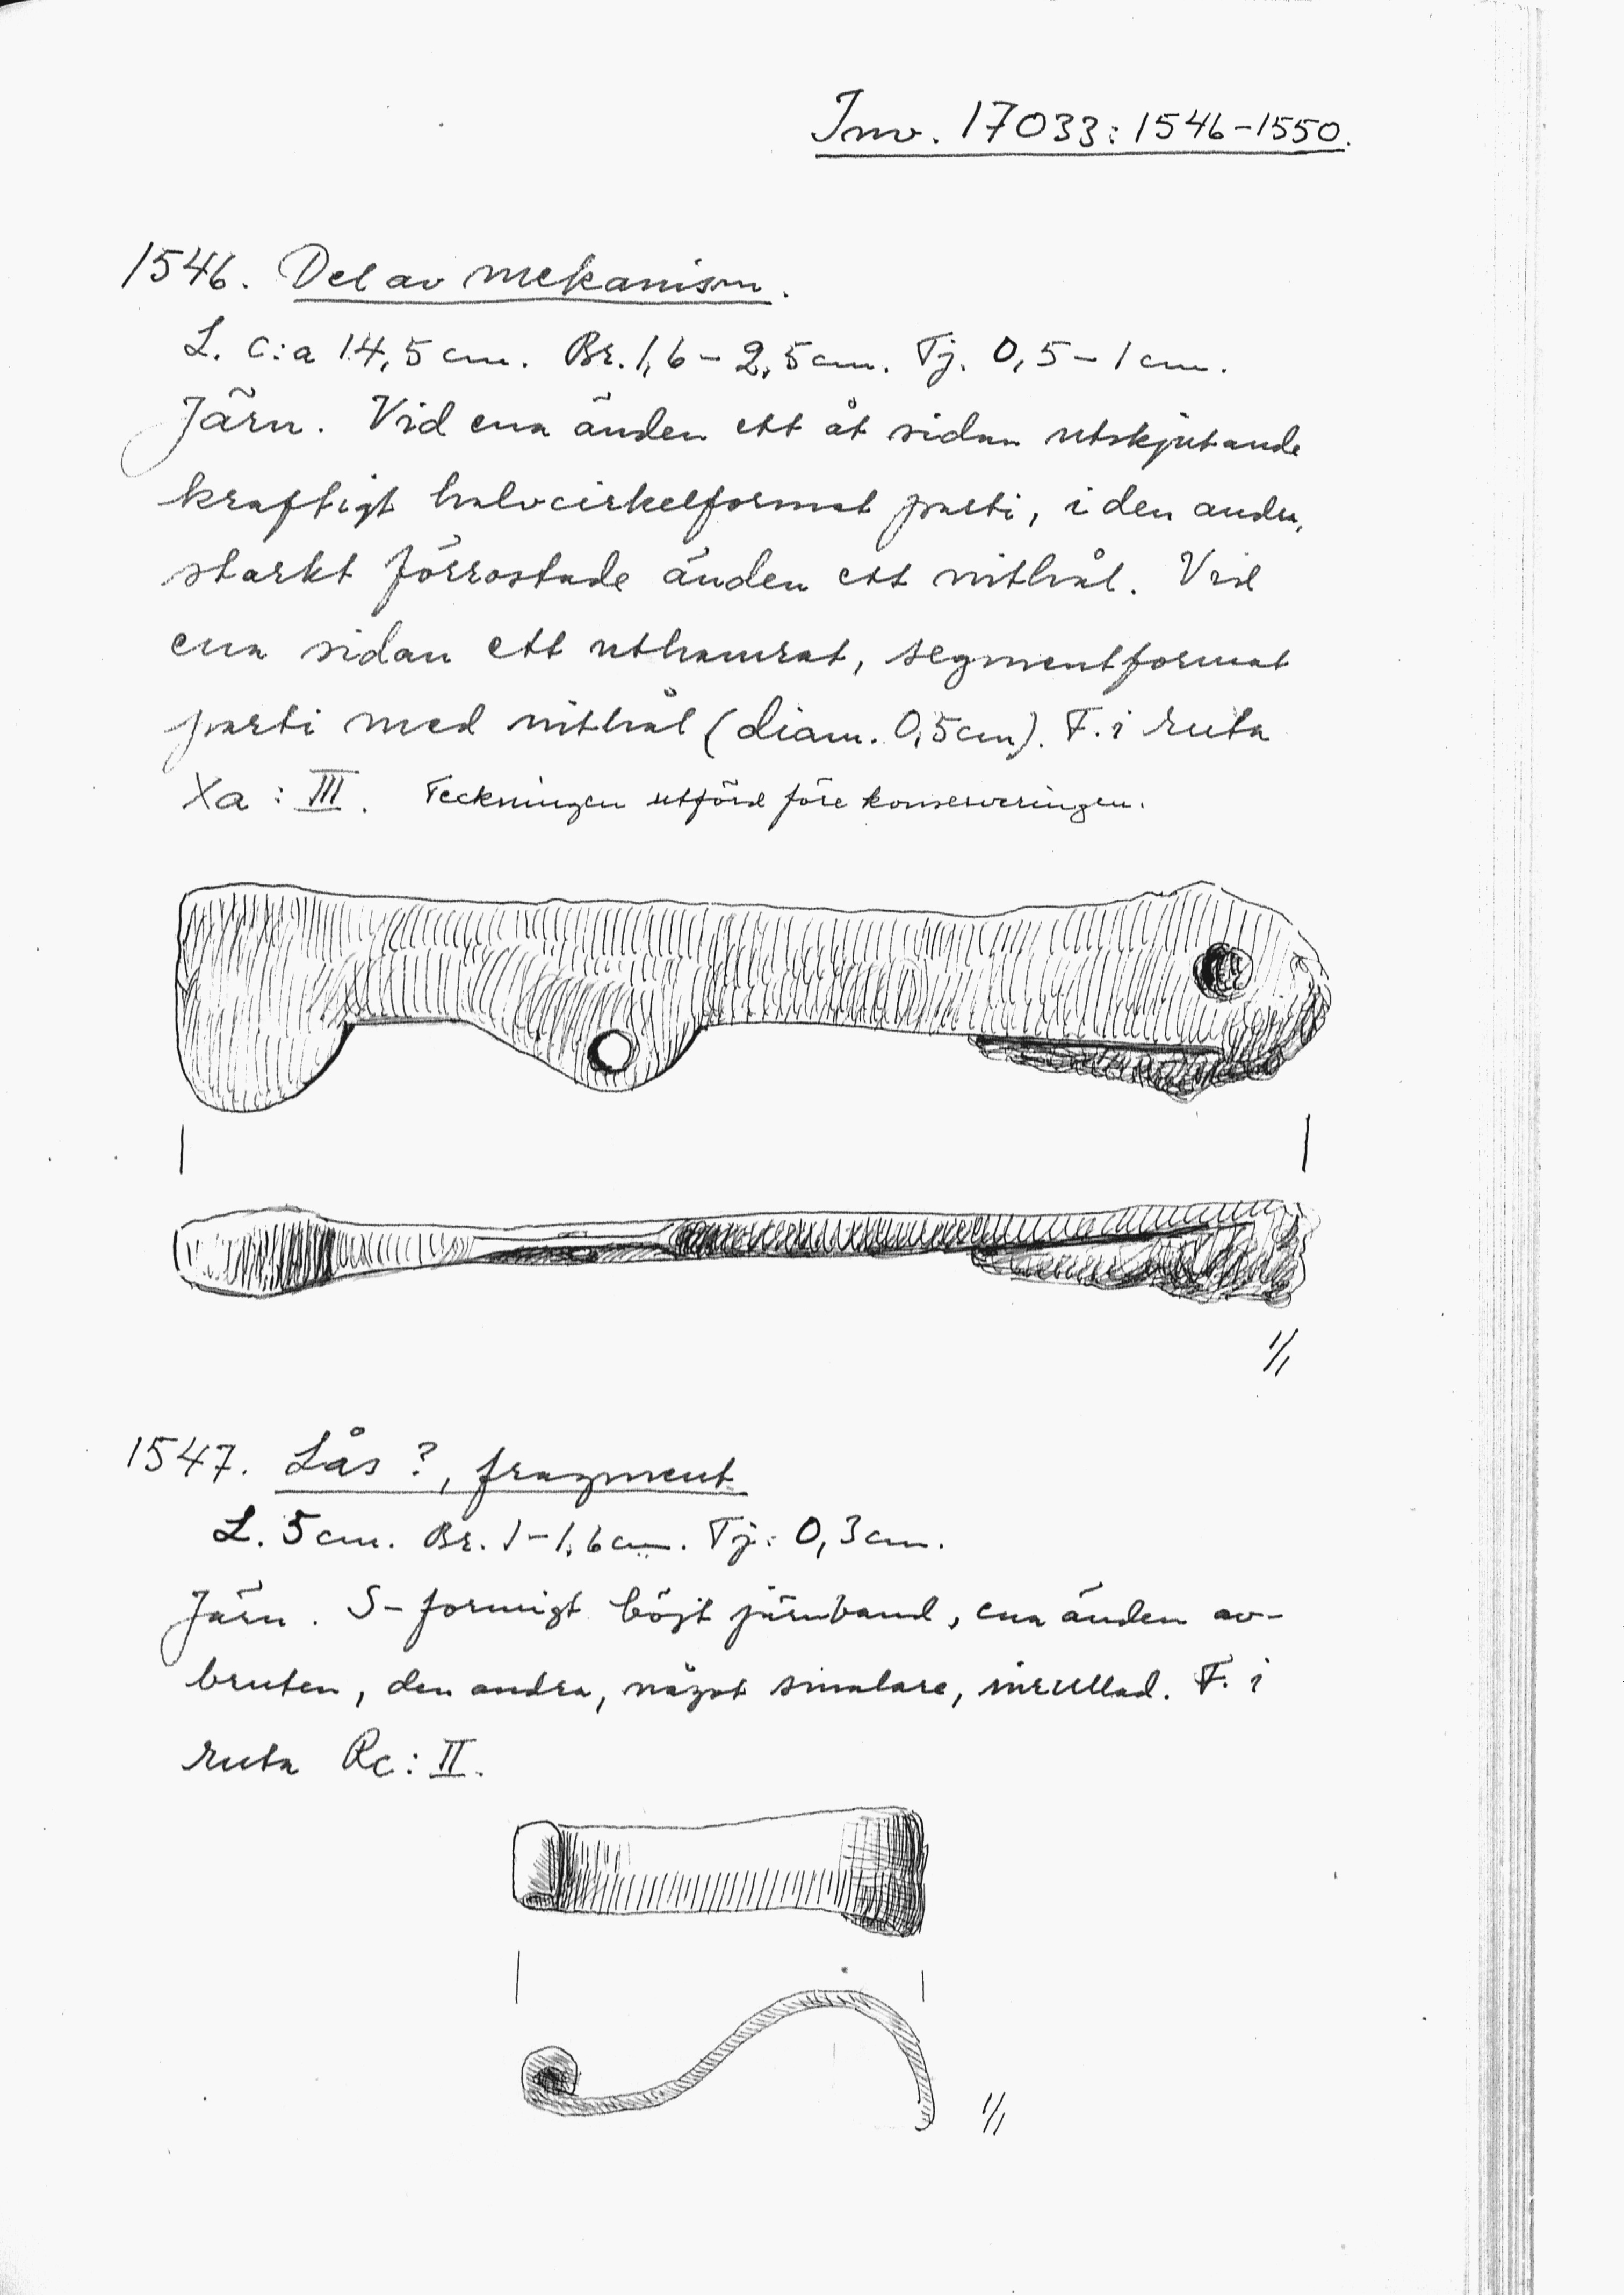 Inv. 17033: 1546-1550.
1546. Del av mekanism.
L. c:a 14,5 cm. Br. 1,6-2,5 cm. Tj. 0,5-1 cm.
Järn. Vid ena änden ett åt sidan utskjutande
kraftigt halvcirkelformat parti, i den andra,
starkt förrostade änden ett nithål. Vid
ena sidan ett uthamrat, segmentformat
parti med nithål (diam. 0,5 cm). F. i ruta
Xa : III. Teckningen utförd före konserveringen.
1/1
1547. Lås ?, fragment
L. 5 cm. Br. 1-1,6 cm. Tj: 0,3 cm.
Järn. S-formigt böjt järnband, ena änden av-
bruten, den andra, något smalare, inrullad. F. i
ruta Rc: II.
1/1